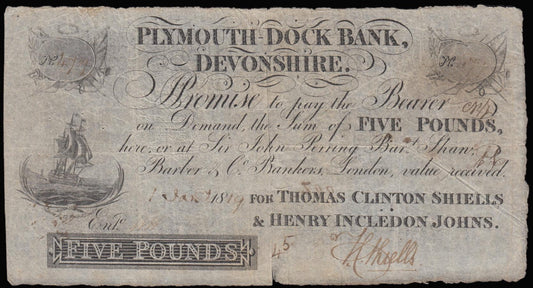 PLYMOUTH-DOCK BANK,
DEVONSHIRE.
No.
No.
Promise to pay the Bearer
on Demand, the Sum of FIVE POUNDS,
here, or at Sir John Perring Bart. Shaw,
Barber & Co. Bankers, London, value received.
1819 FOR THOMAS CLINTON SHIELLS
& HENRY INCLEDON JOHNS.
Entd.
FIVE POUNDS
45
Shiells